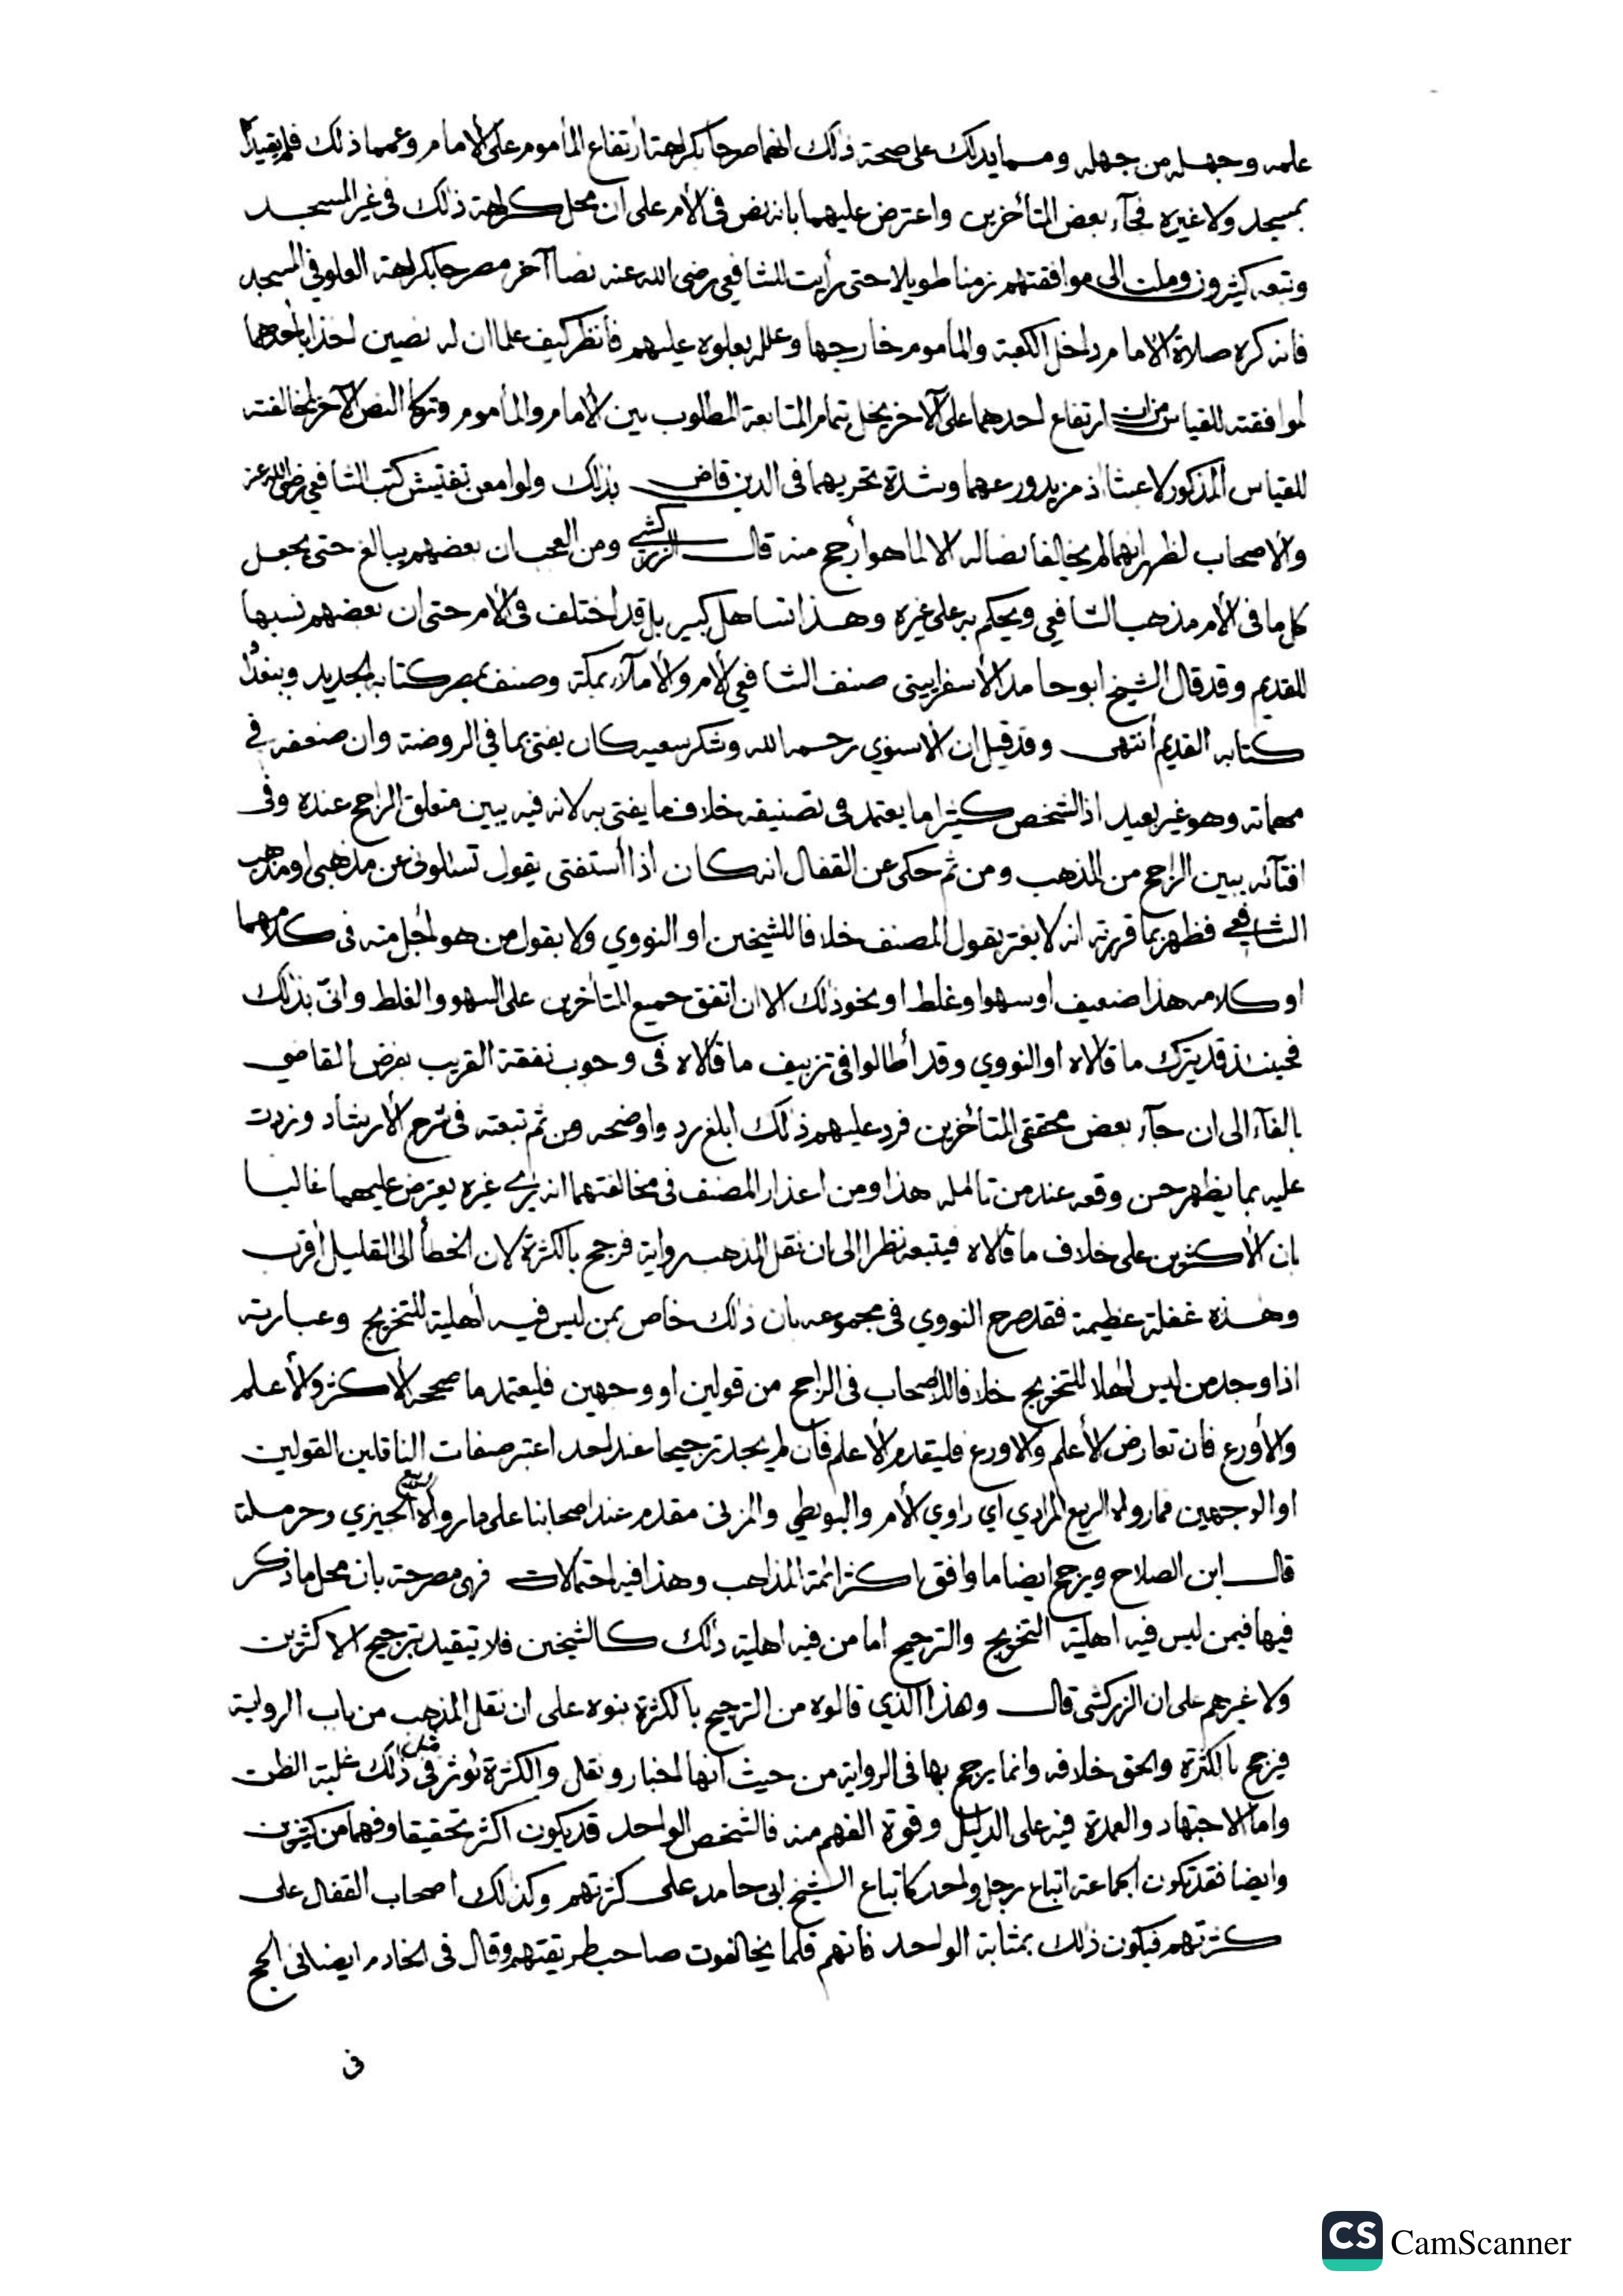 علمه وجهله من جهله ومما يدلك على صحة ذلك انهما صرحا بكراهة ارتفاع المأموم على الأمام وعمما ذلك فلم يقيدا
بمسجد ولا غيره فجآء بعض المتأخرين واعترض عليهما بانه نص في الأم على ان محل كراهة ذلك في غير المسجد
وتبعه كثيرون وملت الى موافقتهم زمنا طويلا حتى رأيت للشافعي رضي الله عنه نصا آخر مصرحا بكراهة العلو في المسجد
فانه كره صلاة الامام داخل الكعبة والمأموم خارجها وعلله بعلوه عليهم فأنظر كيف علما ان له نصين اخذا بأحدهما
لموافقته للقياس من ان ارتفاع احدهما على الآخر يخل بتمام المتابعة المطلوب بين الأمام والمأموم وتركا النص الآخر لمخالفته
للقياس المذكور لا عبثا اذ مزيد ورعهما وشدة تحريهما في الدين قاض بذلك ولو امعن تفتيش كتب الشافعي رضي الله عنه
والاصحاب لظهر انهما لم يخالفا نصا له الا لما هو أرجح منه قال الزركشي ومن العجب ان بعضهم يبالغ حتى يجعل
كل ما في الأم مذهب الشافعي ويحكم به على غيره وهذا تساهل كبير بل قد اختلف في الأم حتى ان بعضهم نسبها
للقديم وقد قال الشيخ ابو حامد الأسفرايينى صنف الشافعي الأم والأمالآء بمكة وصنف بمصر كتابه الجديد وببغداد
كتابه القديم أنتهى وقد قيل ان الاسنوي رحمه الله وشكر سعيه كان يفتى بما في الروضة وان ضعفه في
مهماته وهو غير بعيد اذ الشخص كثيرا ما يعتمد في تصنيفه خلاف ما يفتى به لانه فيه يبين متعلق الراجح عنده وفى
افتآئه يبين الراجح من المذهب ومن ثم حكى عن القفال انه كان اذا أستفتى يقول تسئلونى عن مذهبى او مذهب
الشافعي فظهر بما قررته انه لا يغتر بقول المصنف خلافا للشيخين او النووي ولا بقول من هو اجل منه فى كلامهما
او كلامه هذا ضعيف او سهو او غلط او نحو ذلك الا ان اتفق جميع المتأخرين على السهو والغلط وانىّ بذلك
فحينئذ قد يترك ما قالاه او النووي وقد أطالوا في تزييف ما قالاه فى وجوب نفقة القريب بفرض القاضي
بالفآء الى ان جآء بعض محققي المتأخرين فرد عليهم ذلك ابلغ رد واوضحه ومن ثم تبعته فى شرح الأرشاد وزدت
عليه بما يظهر حسن وقعه عند من تأمله هذا ومن اعذار المصنف في مخالفتهما انه يرى غيره يعترض عليهما غالبا
بان الأكثرين على خلاف ما قالاه فيتبعه نظرا الى ان نقل المذهب رواية فرجح بالكثرة لان الخطأ الى القليل اقرب
وهذه غفلة عظيمة فقد صرح النووي فى مجموعه بان ذلك خاص بمن ليس فيه أهلية للتخريج وعبارته
اذا وجد من ليس اهلا للتخريج خلافا للأصحاب فى الراجح من قولين او وجهين فليعتمد ما صححه الأكثر والأعلم
والأورع فان تعارض الأعلم والاورع فليقدم الأعلم فان لم يجد ترجيحا عند احد اعتبر صفات الناقلين القولين
او الوجهين فما رواه الربيع المرادي اي راوي الأم والبويطي والمزنى مقدم عند اصحابنا على ما رواه الربيع الجيزي وحرملة
قال ابن الصلاح ويرجح ايضا ما وافق اكثر ائمة المذاهب وهذا فيه احتمالات فهي مصرحة بان محل ما ذكر
فيها فيمن ليس فيه اهلية التخريج والترجيح اما من فيه اهلية ذلك كالشيخين فلا تيقيد بترجيح الاكثرين
ولا غيرهم على ان الزركشي قال وهذا الذي قالوه من الترجيح بالكثرة بنوه على ان نقل المذهب من باب الرواية
فيرجح بالكثرة والحق خلافه وانما يرجح بها فى الرواية من حيث أنها اخبار ونقل والكثرة تؤثر فى مثل ذلك غلبة الظن
واما الاجتهاد والعمدة فيه على الدليل وقوة الفهم منه فالشخص الواحد قد يكون اكثر تحقيقا وفهما من كثيرين
وايضا فقد تكون الجماعة اتباع رجل واحد كاتباع الشيخ ابى حامد على كثرتهم وكذلك اصحاب القفال على
كثرتهم فيكون ذلك بمثابة الواحد فانهم قلما يخالفون صاحب طريقتهم وقال فى الخادم ايضا فى الحج
فى
CS CamScanner